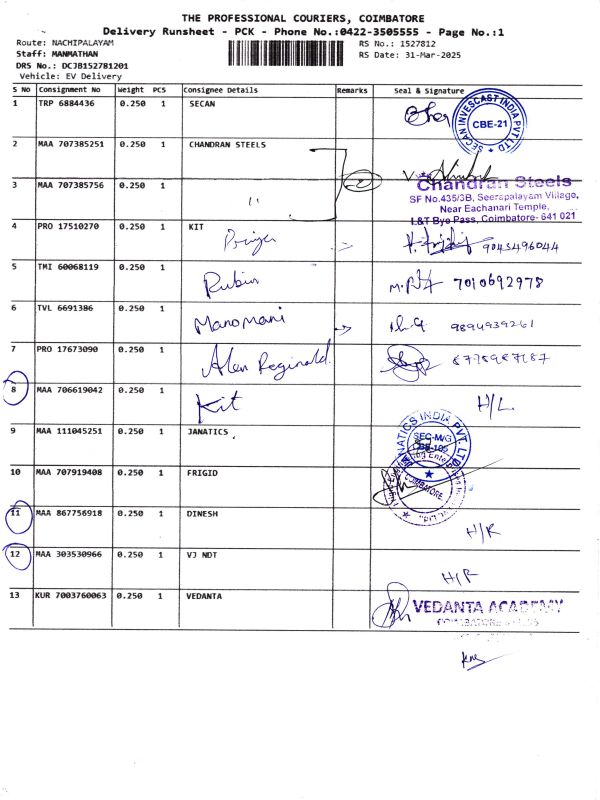 THE PROFESSIONAL COURIERS, COIMBATORE
Delivery Runsheet - PCK - Phone No.:0422-3505555 - Page No.:1
Route: NACHIPALAYAM RS No.: 1527812
Staff: MANMATHAN RS Date: 31-Mar-2025
DRS No.: DCJB152781201
Vehicle: EV Delivery
S No Consignment No Weight PCS Consignee Details Remarks Seal & Signature
1 TRP 6884436 0.250 1 SECAN
SECAN INVESCAST INDIA PVT LTD CBE-21
2 MAA 707385251 0.250 1 CHANDRAN STEELS
3 MAA 707385756 0.250 1 "
Chandran Steels
SF No.435/3B, Seerapalayam Village,
Near Eachanari Temple,
L&T Bye Pass, Coimbatore- 641 021
4 PRO 17510270 0.250 1 KIT
Priya 9043496044
5 TMI 60068119 0.250 1 Rubin 7010692978
6 TVL 6691386 0.250 1 Manomani 9894939261
7 PRO 17673090 0.250 1 Alen Reginald.
8 MAA 706619042 0.250 1 Kit H/L
9 MAA 111045251 0.250 1 JANATICS
JANATICS INDIA PVT. LTD
10 MAA 707919408 0.250 1 FRIGID
COIMBATORE
11 MAA 867756918 0.250 1 DINESH H/R
12 MAA 303530966 0.250 1 VJ NDT H/R
13 KUR 7003760063 0.250 1 VEDANTA
VEDANTA ACADEMY